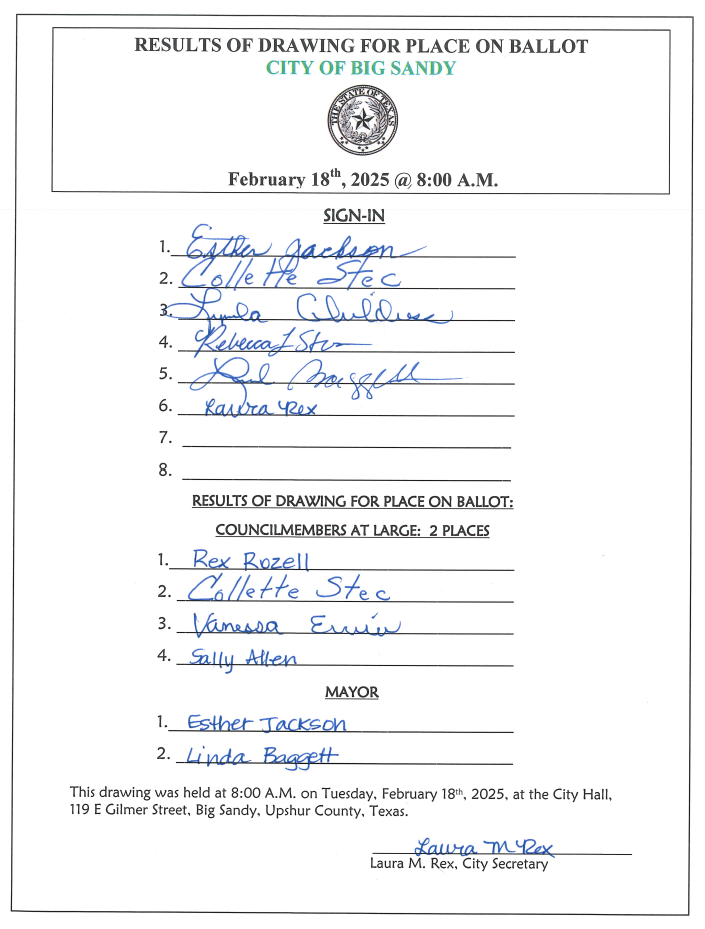 RESULTS OF DRAWING FOR PLACE ON BALLOT
CITY OF BIG SANDY
THE STATE OF TEXAS
February 18th, 2025 @ 8:00 A.M.
SIGN-IN
1. Esther Jackson
2. Collette Stec
3. Childress
4. Rebecca L
5.
6. Laura Rex
7.
8.
RESULTS OF DRAWING FOR PLACE ON BALLOT:
COUNCILMEMBERS AT LARGE: 2 PLACES
1. Rex Rozell
2. Collette Stec
3. Vanessa Erwin
4. Sally Allen
MAYOR
1. Esther Jackson
2. Linda Baggett
This drawing was held at 8:00 A.M. on Tuesday, February 18th, 2025, at the City Hall,
119 E Gilmer Street, Big Sandy, Upshur County, Texas.
Laura M Rex
Laura M. Rex, City Secretary